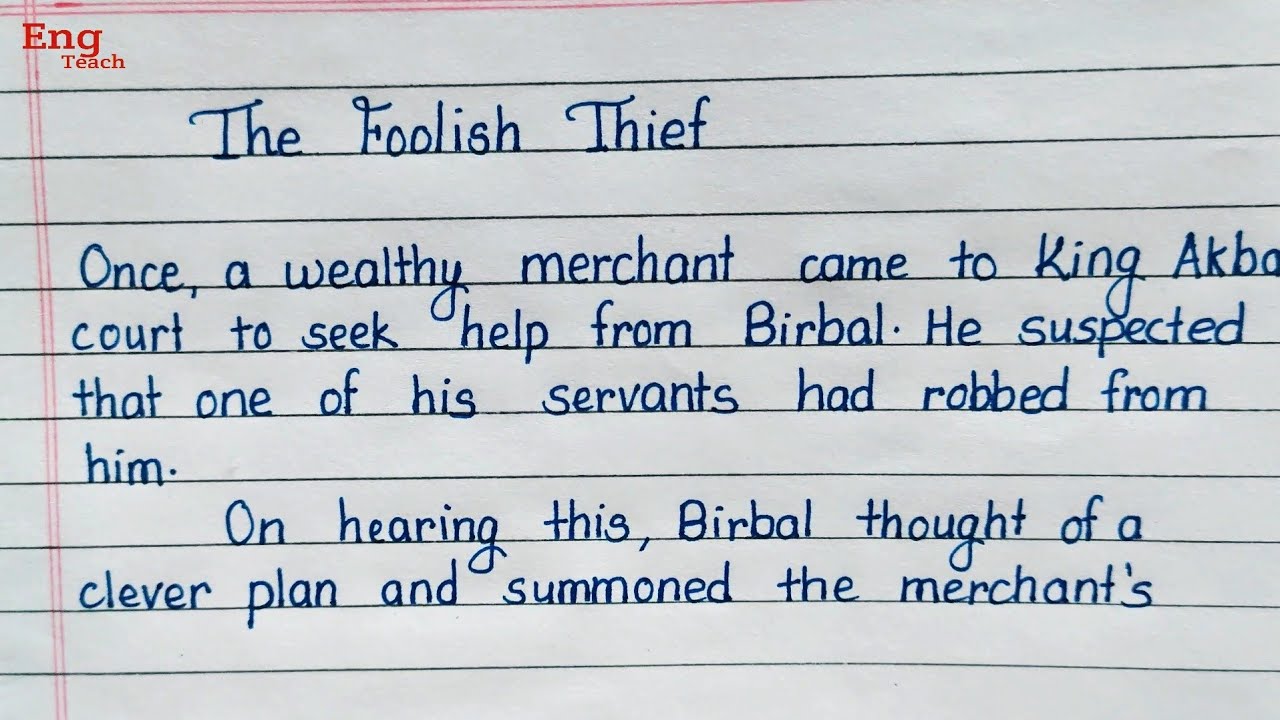 Eng
Teach
The Foolish Thief
Once, a wealthy merchant came to King Akba
court to seek help from Birbal. He suspected
that one of his servants had robbed from
him.
On hearing this, Birbal thought of a
clever plan and summoned the merchant's